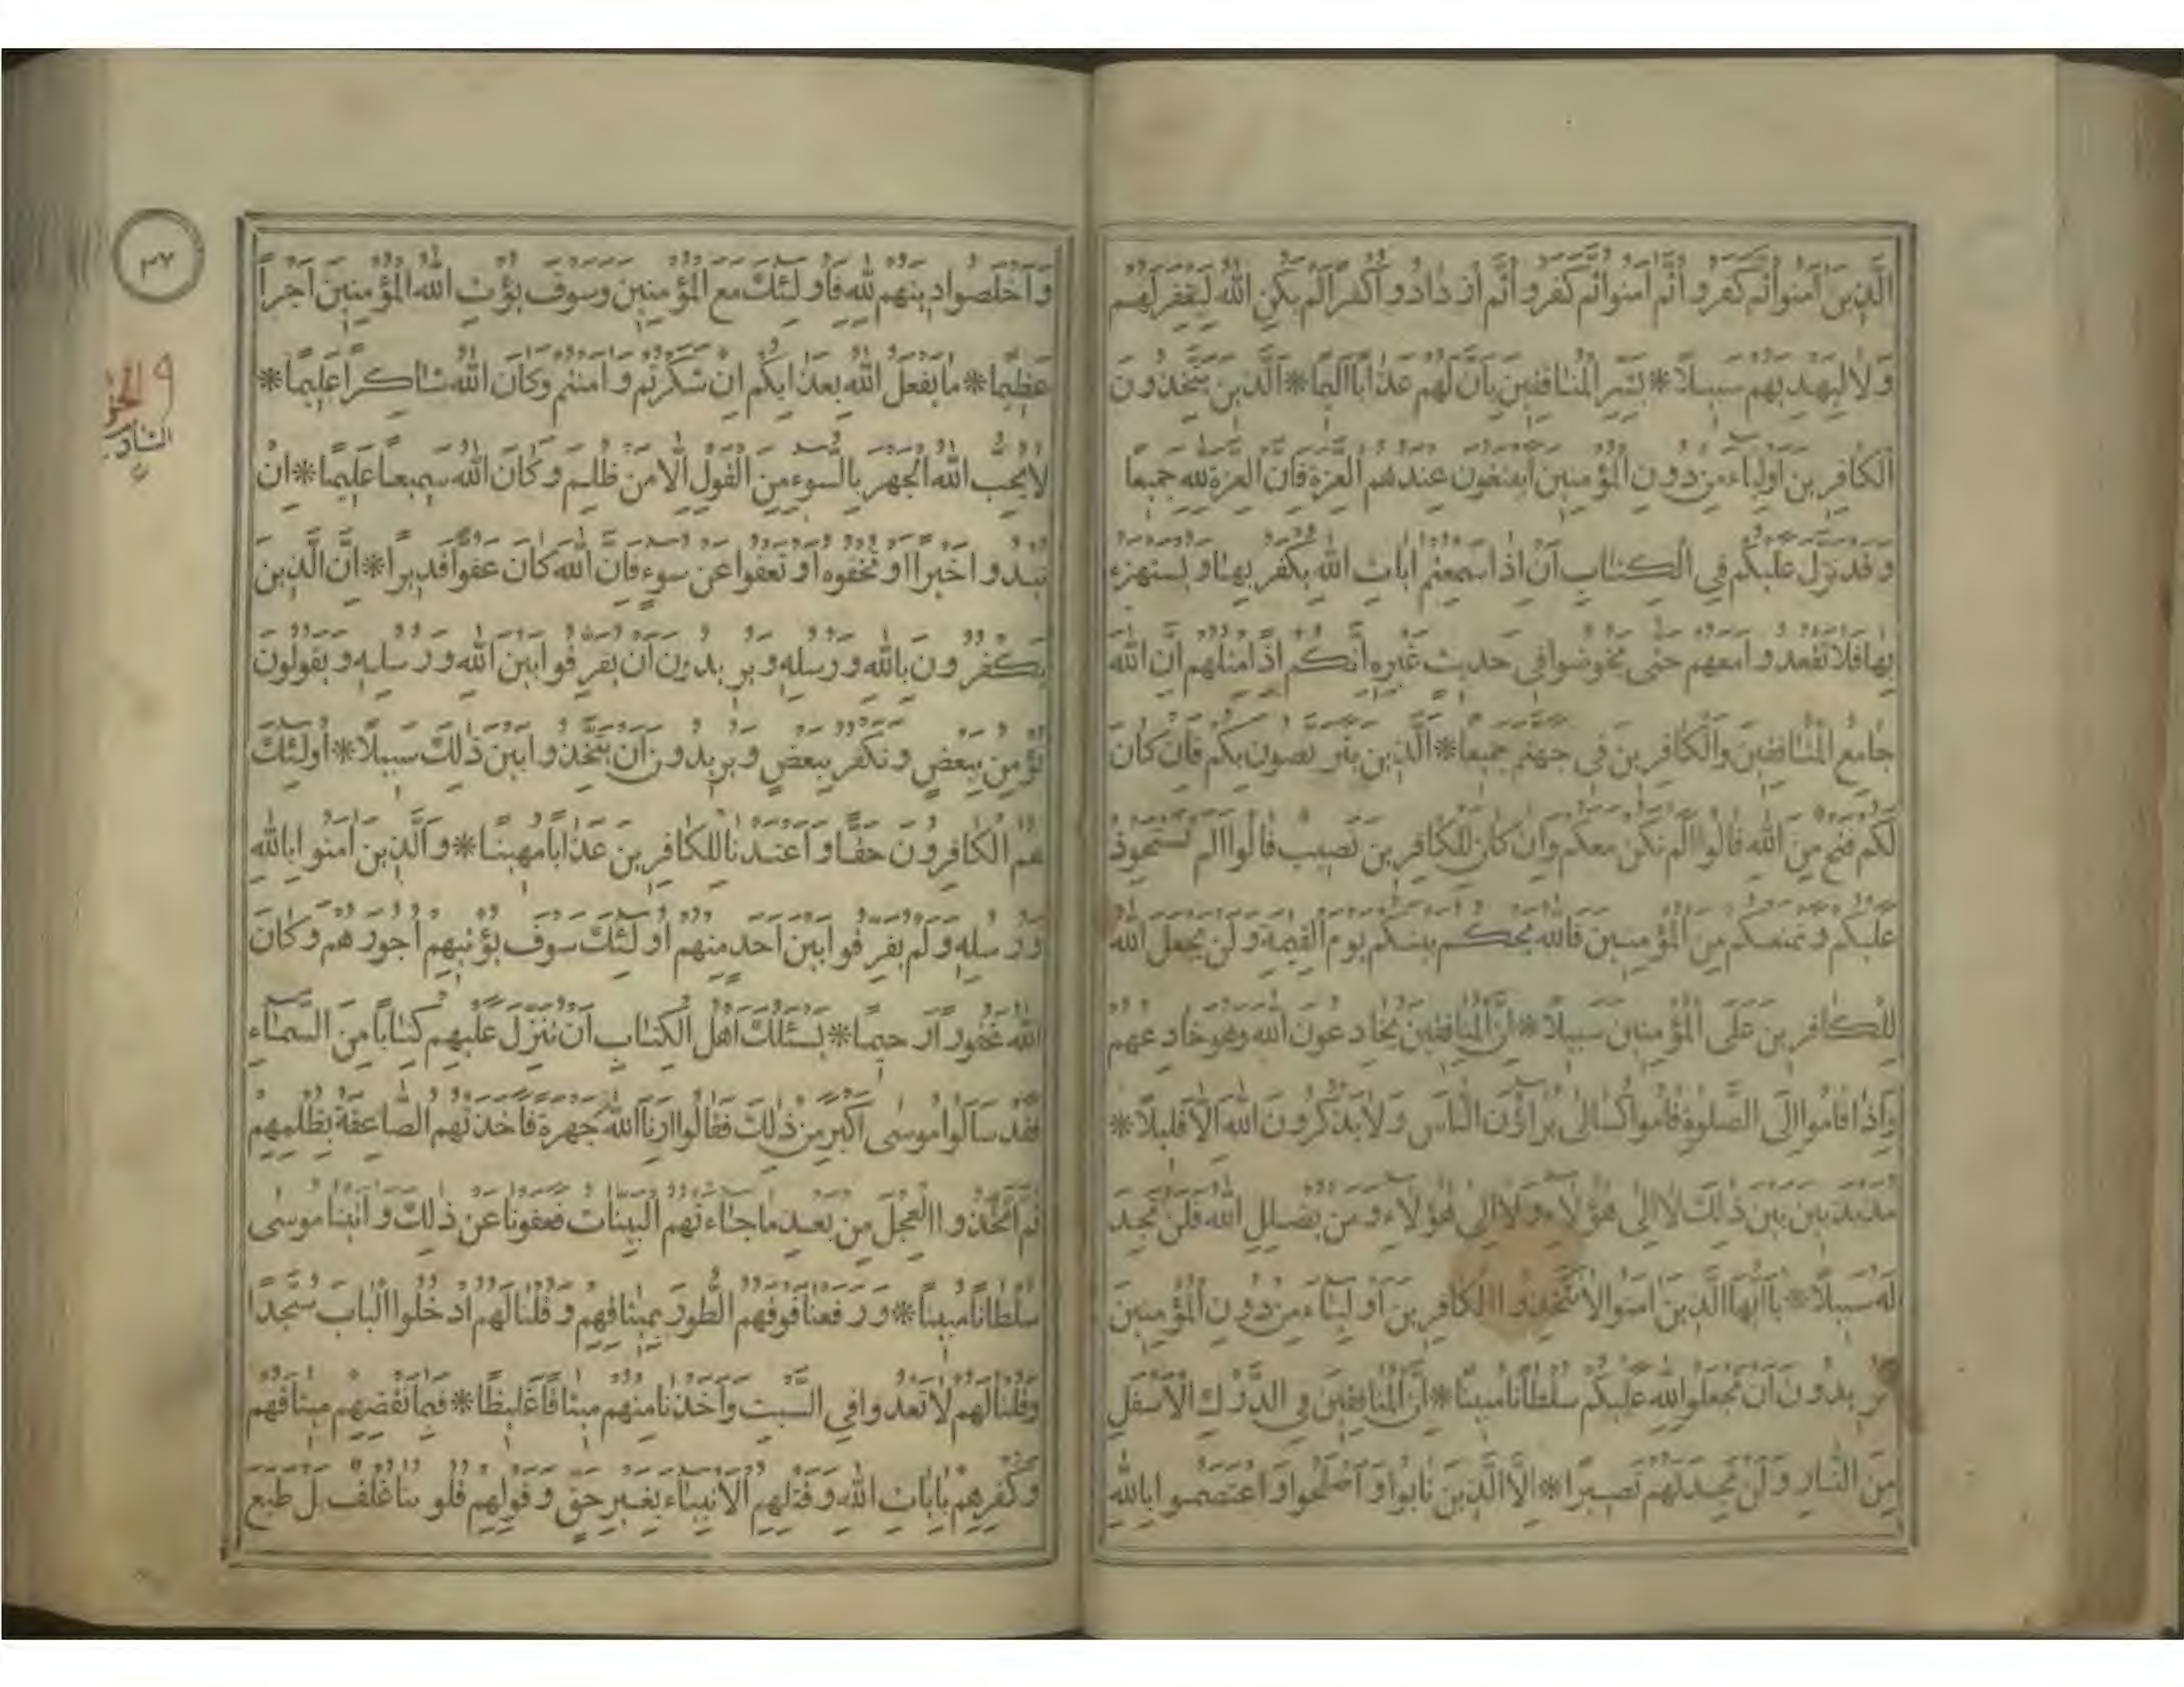 الَّذِينَ آمَنُوا ثُمَّ كَفَرُوا ثُمَّ آمَنُوا ثُمَّ كَفَرُوا ثُمَّ ازْدَادُوا كُفْرًا لَمْ يَكُنِ اللَّهُ لِيَغْفِرَ لَهُمْ
وَلَا لِيَهْدِيَهُمْ سَبِيلًا * بَشِّرِ الْمُنَافِقِينَ بِأَنَّ لَهُمْ عَذَابًا أَلِيمًا * الَّذِينَ يَتَّخِذُونَ
الْكَافِرِينَ أَوْلِيَاءَ مِنْ دُونِ الْمُؤْمِنِينَ أَيَبْتَغُونَ عِنْدَهُمُ الْعِزَّةَ فَإِنَّ الْعِزَّةَ لِلَّهِ جَمِيعًا
وَقَدْ نَزَّلَ عَلَيْكُمْ فِي الْكِتَابِ أَنْ إِذَا سَمِعْتُمْ آيَاتِ اللَّهِ يُكْفَرُ بِهَا وَيُسْتَهْزَءُ
بِهَا فَلَا تَقْعُدُوا مَعَهُمْ حَتَّى يَخُوضُوا فِي حَدِيثٍ غَيْرِهِ إِنَّكُمْ إِذًا مِثْلُهُمْ إِنَّ اللَّهَ
جَامِعُ الْمُنَافِقِينَ وَالْكَافِرِينَ فِي جَهَنَّمَ جَمِيعًا * الَّذِينَ يَتَرَبَّصُونَ بِكُمْ فَإِنْ كَانَ
لَكُمْ فَتْحٌ مِنَ اللَّهِ قَالُوا أَلَمْ نَكُنْ مَعَكُمْ وَإِنْ كَانَ لِلْكَافِرِينَ نَصِيبٌ قَالُوا أَلَمْ نَسْتَحْوِذْ
عَلَيْكُمْ وَنَمْنَعْكُمْ مِنَ الْمُؤْمِنِينَ فَاللَّهُ يَحْكُمُ بَيْنَكُمْ يَوْمَ الْقِيمَةِ وَلَنْ يَجْعَلَ اللَّهُ
لِلْكَافِرِينَ عَلَى الْمُؤْمِنِينَ سَبِيلًا * إِنَّ الْمُنَافِقِينَ يُخَادِعُونَ اللَّهَ وَهُوَ خَادِعُهُمْ
وَإِذَا قَامُوا إِلَى الصَّلٰوةِ قَامُوا كُسَالَى يُرَاؤُنَ النَّاسَ وَلَا يَذْكُرُونَ اللَّهَ إِلَّا قَلِيلًا *
مُذَبْذَبِينَ بَيْنَ ذَلِكَ لَا إِلَى هَؤُلَاءِ وَلَا إِلَى هَؤُلَاءِ وَمَنْ يُضْلِلِ اللَّهُ فَلَنْ تَجِدَ
لَهُ سَبِيلًا * يَا أَيُّهَا الَّذِينَ آمَنُوا لَا تَتَّخِذُوا الْكَافِرِينَ أَوْلِيَاءَ مِنْ دُونِ الْمُؤْمِنِينَ
تُرِيدُونَ أَنْ تَجْعَلُوا لِلَّهِ عَلَيْكُمْ سُلْطَانًا مُبِينًا * إِنَّ الْمُنَافِقِينَ فِي الدَّرْكِ الْأَسْفَلِ
مِنَ النَّارِ وَلَنْ تَجِدَ لَهُمْ نَصِيرًا * إِلَّا الَّذِينَ تَابُوا وَأَصْلَحُوا وَاعْتَصَمُوا بِاللَّهِ
٣٧
وَأَخْلَصُوا دِينَهُمْ لِلَّهِ فَأُولَئِكَ مَعَ الْمُؤْمِنِينَ وَسَوْفَ يُؤْتِ اللَّهُ الْمُؤْمِنِينَ أَجْرًا
عَظِيمًا * مَا يَفْعَلُ اللَّهُ بِعَذَابِكُمْ إِنْ شَكَرْتُمْ وَآمَنْتُمْ وَكَانَ اللَّهُ شَاكِرًا عَلِيمًا *
لَا يُحِبُّ اللَّهُ الْجَهْرَ بِالسُّوءِ مِنَ الْقَوْلِ إِلَّا مَنْ ظُلِمَ وَكَانَ اللَّهُ سَمِيعًا عَلِيمًا * إِنْ
تُبْدُوا خَيْرًا أَوْ تُخْفُوهُ أَوْ تَعْفُوا عَنْ سُوءٍ فَإِنَّ اللَّهَ كَانَ عَفُوًّا قَدِيرًا * إِنَّ الَّذِينَ
يَكْفُرُونَ بِاللَّهِ وَرُسُلِهِ وَيُرِيدُونَ أَنْ يُفَرِّقُوا بَيْنَ اللَّهِ وَرُسُلِهِ وَيَقُولُونَ
نُؤْمِنُ بِبَعْضٍ وَنَكْفُرُ بِبَعْضٍ وَيُرِيدُونَ أَنْ يَتَّخِذُوا بَيْنَ ذَلِكَ سَبِيلًا * أُولَئِكَ
هُمُ الْكَافِرُونَ حَقًّا وَأَعْتَدْنَا لِلْكَافِرِينَ عَذَابًا مُهِينًا * وَالَّذِينَ آمَنُوا بِاللَّهِ
وَرُسُلِهِ وَلَمْ يُفَرِّقُوا بَيْنَ أَحَدٍ مِنْهُمْ أُولَئِكَ سَوْفَ يُؤْتِيهِمْ أُجُورَهُمْ وَكَانَ
اللَّهُ غَفُورًا رَحِيمًا * يَسْئَلُكَ أَهْلُ الْكِتَابِ أَنْ تُنَزِّلَ عَلَيْهِمْ كِتَابًا مِنَ السَّمَاءِ
فَقَدْ سَأَلُوا مُوسَى أَكْبَرَ مِنْ ذَلِكَ فَقَالُوا أَرِنَا اللَّهَ جَهْرَةً فَأَخَذَتْهُمُ الصَّاعِقَةُ بِظُلْمِهِمْ
ثُمَّ اتَّخَذُوا الْعِجْلَ مِنْ بَعْدِ مَا جَاءَتْهُمُ الْبَيِّنَاتُ فَعَفَوْنَا عَنْ ذَلِكَ وَآتَيْنَا مُوسَى
سُلْطَانًا مُبِينًا * وَرَفَعْنَا فَوْقَهُمُ الطُّورَ بِمِيثَاقِهِمْ وَقُلْنَا لَهُمُ ادْخُلُوا الْبَابَ سُجَّدًا
وَقُلْنَا لَهُمْ لَا تَعْدُوا فِي السَّبْتِ وَأَخَذْنَا مِنْهُمْ مِيثَاقًا غَلِيظًا * فَبِمَا نَقْضِهِمْ مِيثَاقَهُمْ
وَكُفْرِهِمْ بِآيَاتِ اللَّهِ وَقَتْلِهِمُ الْأَنْبِيَاءَ بِغَيْرِ حَقٍّ وَقَوْلِهِمْ قُلُوبُنَا غُلْفٌ بَلْ طَبَعَ